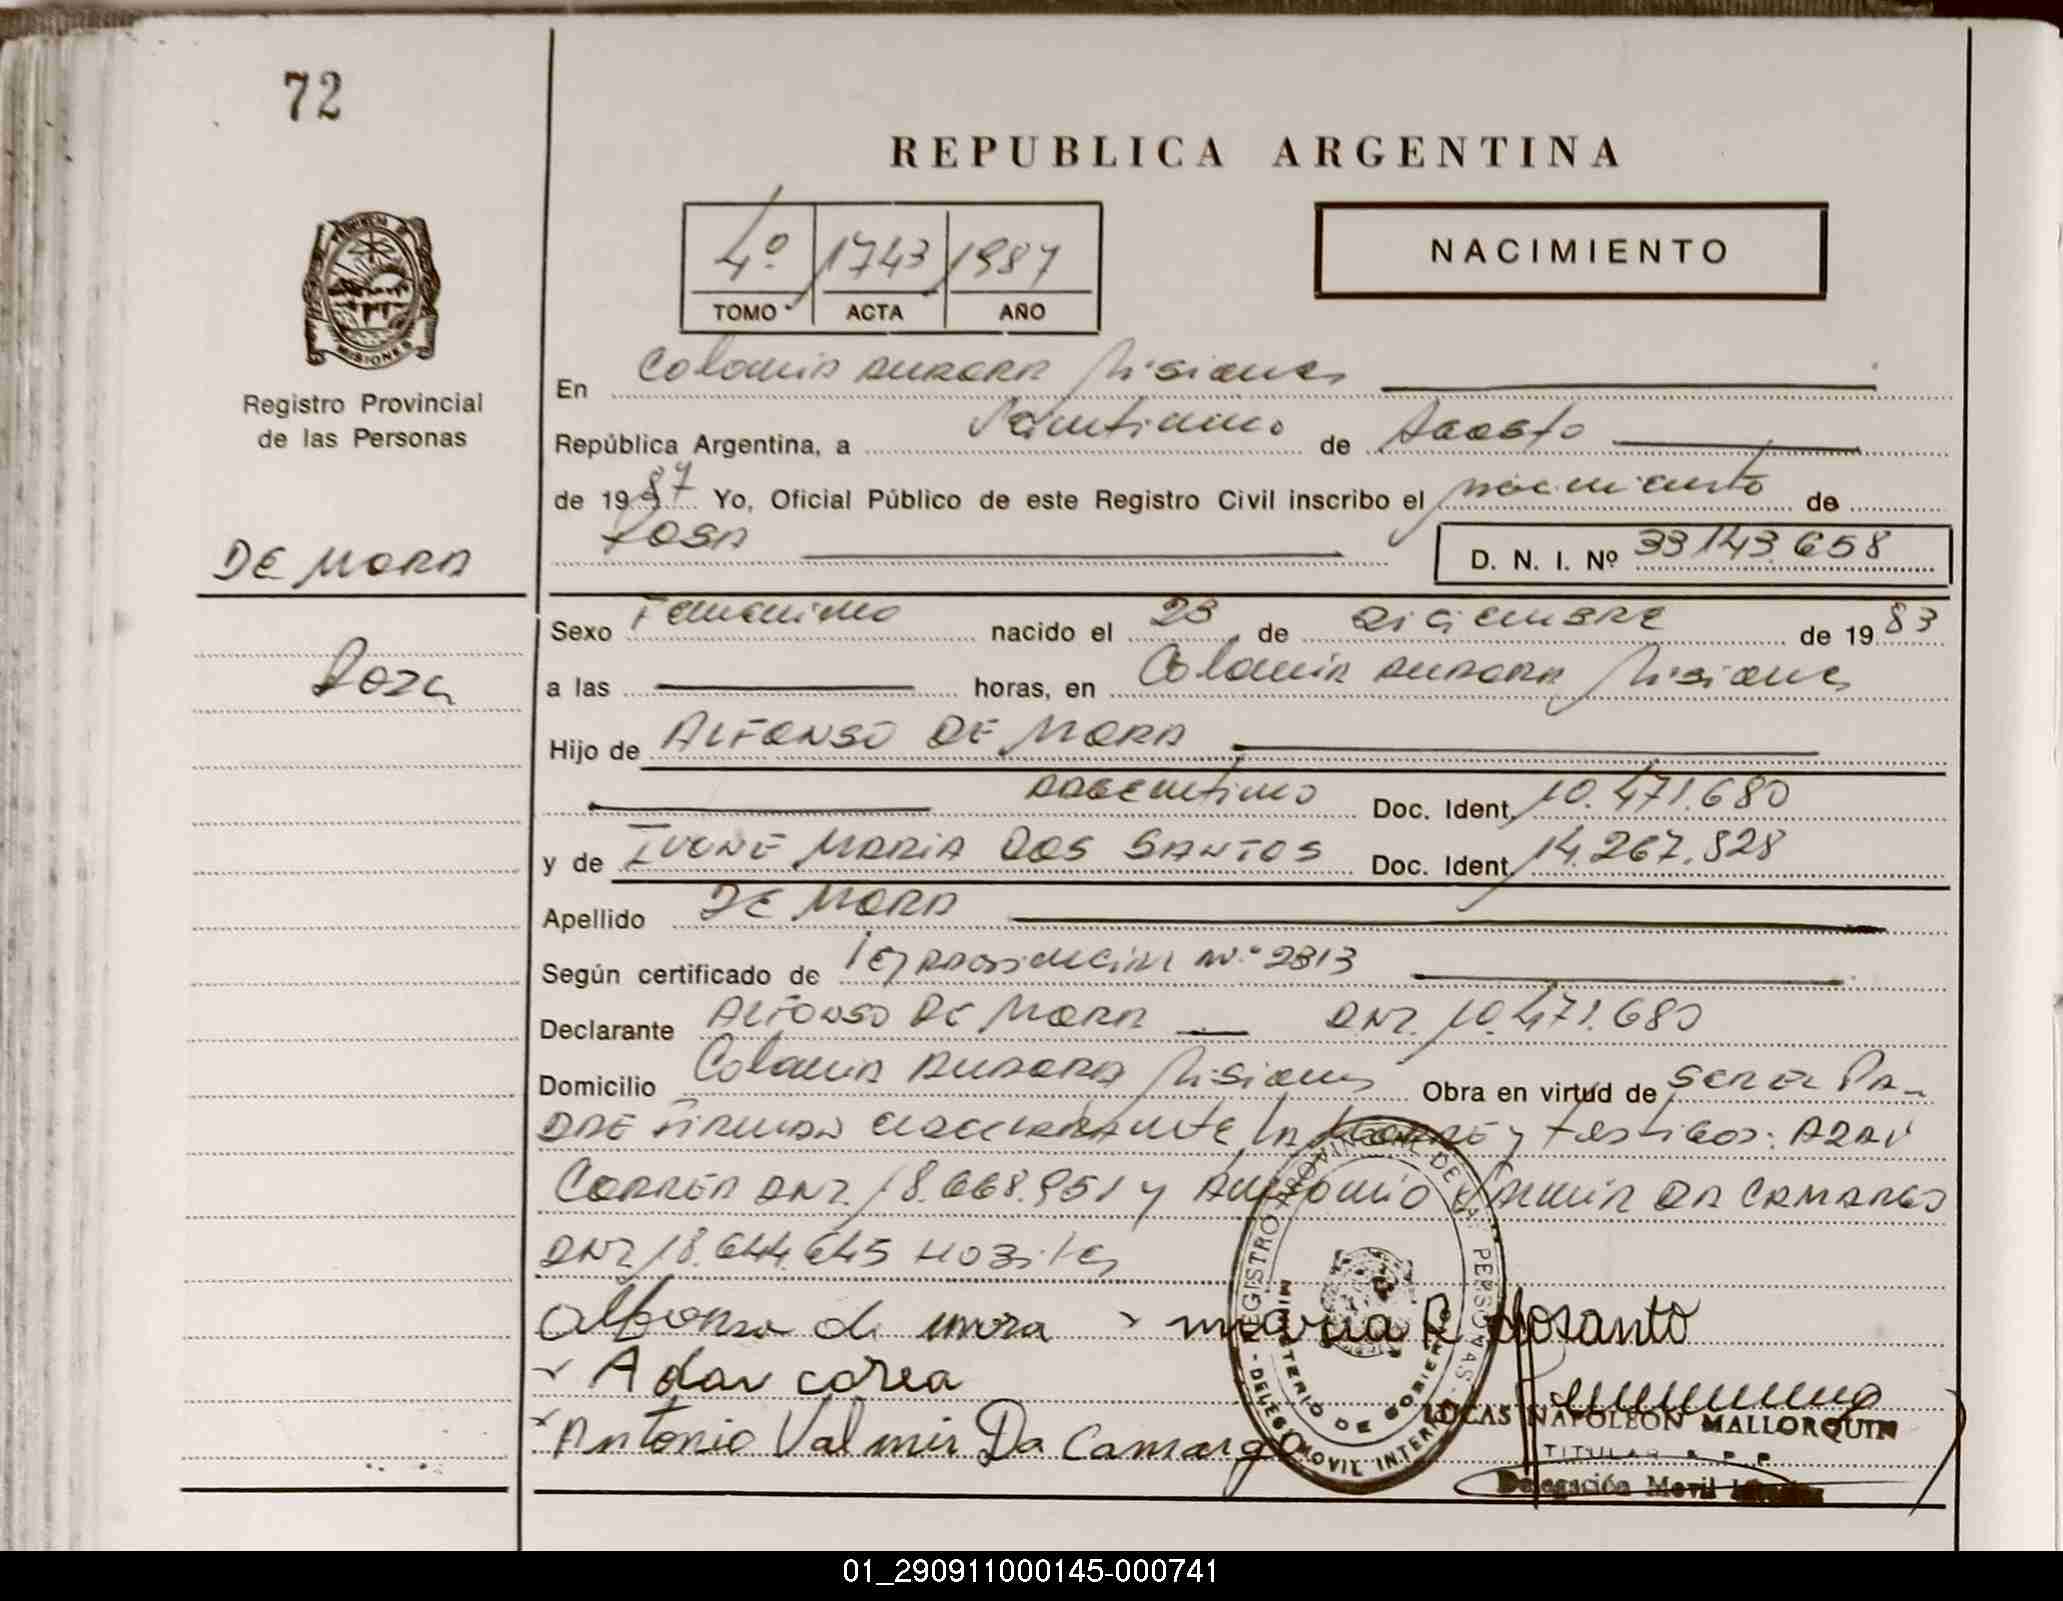 72
REPUBLICA ARGENTINA
4º 1743 1987
TOMO ACTA AÑO
NACIMIENTO
MISIONES
Registro Provincial
de las Personas
En Colonia Aurora Misiones
República Argentina, a Veintiuno de Agosto
de 19 87 Yo, Oficial Público de este Registro Civil inscribo el nacimiento de
Rosa
D. N. I. Nº 33.143.658
DE MORA
Rosa
Sexo Femenino nacido el 23 de Diciembre de 19 83
a las horas, en Colonia Aurora Misiones
Hijo de ALFONSO DE MORA
Argentino Doc. Ident. 10.471.680
y de IVONE MARIA DOS SANTOS Doc. Ident. 14.267.828
Apellido DE MORA
Según certificado de Ley Nº 2313
Declarante ALFONSO DE MORA DNI. 10.471.680
Domicilio Colonia Aurora Misiones Obra en virtud de ser el Pa-
dre Firman el declarante La Madre y Testigos: ADAV
CORREA DNI. 18.668.951 y Antonio Valmir DA CAMARGO
DNI 18.644.645
Alfonso de mora maria R dosanto
Adav corea
Antonio Valmir Da Camargo
REGISTRO PROVINCIAL DE LAS PERSONAS
MINISTERIO DE GOBIERNO
DELEG. MOVIL INTERIOR
LUCAS NAPOLEON MALLORQUIN
TITULAR R. P. P.
Delegación Movil
01_290911000145-000741